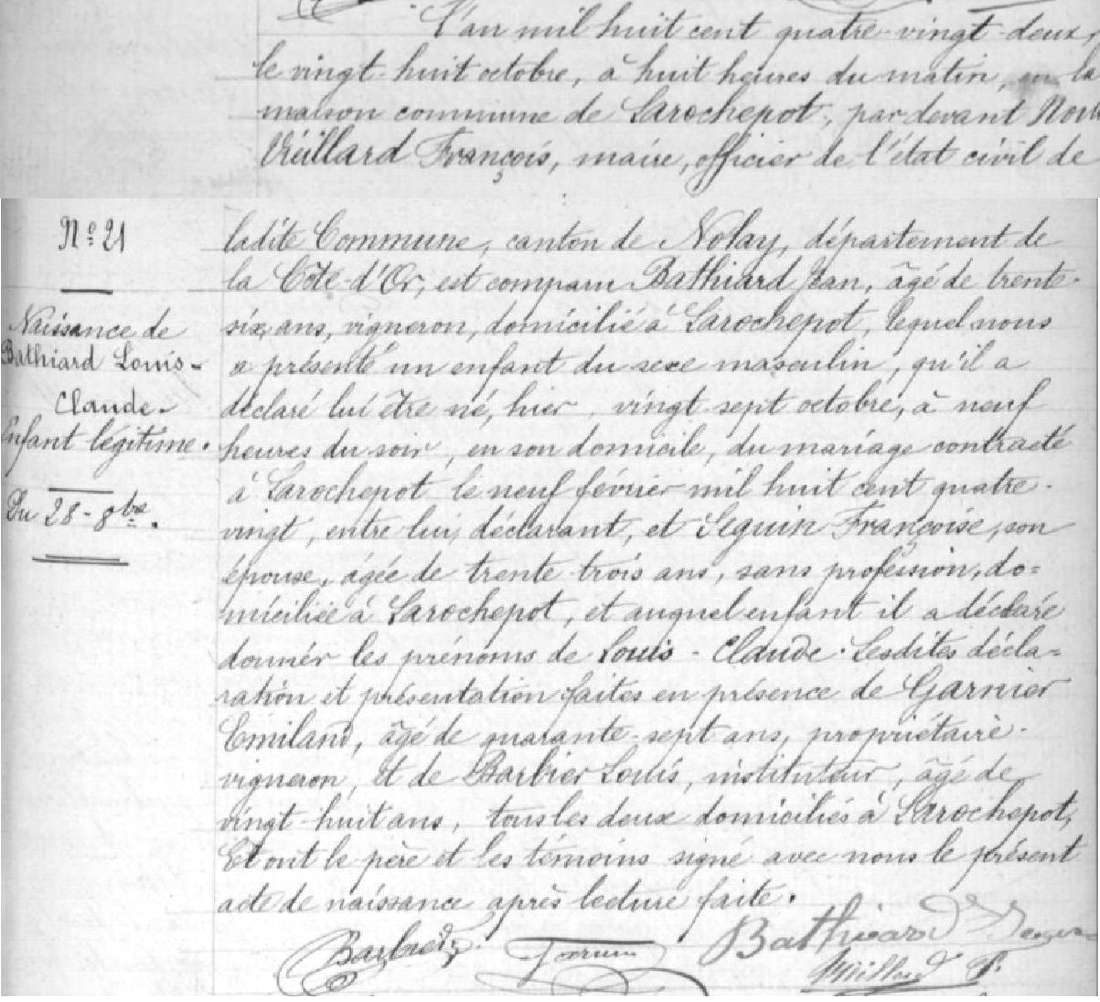 L'an mil huit cent quatre-vingt-deux,
le vingt-huit octobre, à huit heures du matin, en la
maison commune de Larochepot, par-devant Nous
Viéillard François, maire, officier de l'état civil de
N° 21
Naissance de
Bathiard Louis-
Claude.
Enfant légitime.
Du 28-8bre.
ladite Commune, canton de Nolay, département de
la Côte-d'Or, est comparu Bathiard Jean, âgé de trente-
six ans, vigneron, domicilié à Larochepot, lequel nous
a présenté un enfant du sexe masculin, qu'il a
déclaré lui être né, hier, vingt-sept octobre, à neuf
heures du soir, en son domicile, du mariage contracté
à Larochepot le neuf février mil huit cent quatre-
vingt, entre lui, déclarant, et Seguin Françoise, son
épouse, âgée de trente-trois ans, sans profession, do=
miciliée à Larochepot, et auquel enfant il a déclaré
donner les prénoms de Louis-Claude. Lesdites décla=
ration et présentation faites en présence de Garnier
Emiland, âgé de quarante-sept ans, propriétaire-
vigneron, et de Barbier Louis, instituteur, âgé de
vingt-huit ans, tous les deux domiciliés à Larochepot,
Et ont le père et les témoins signé avec nous le présent
acte de naissance après lecture faite.
Barbier Bathiard
Vieillard F.